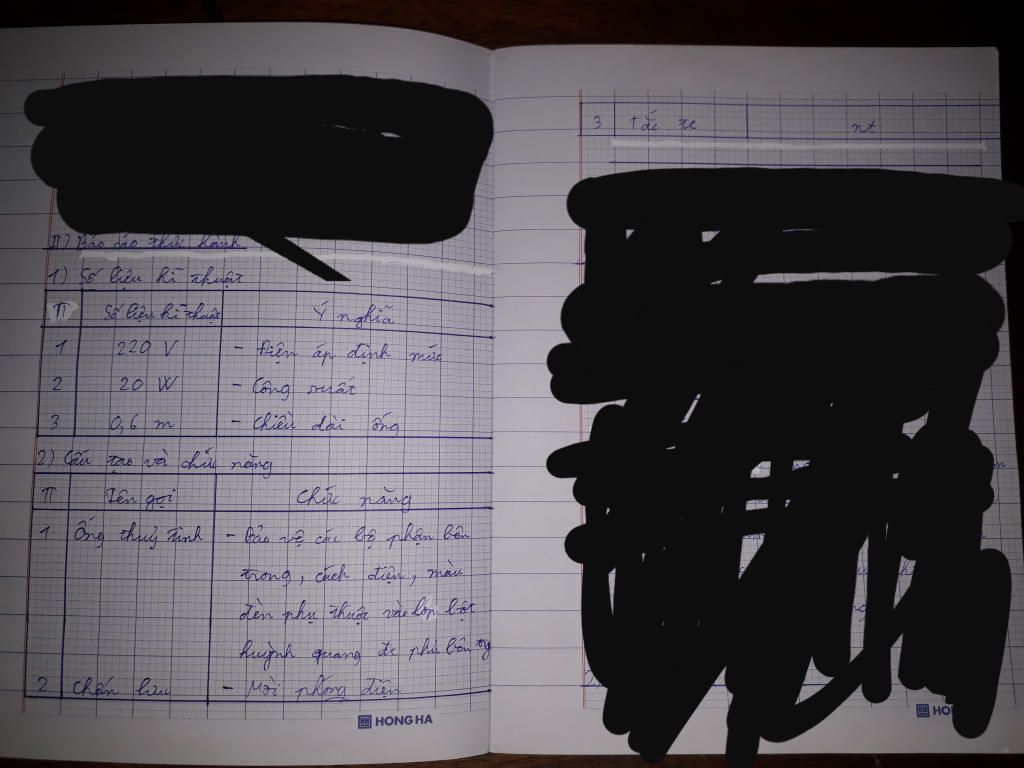 II) Báo cáo thực hành
1) Số liệu kĩ thuật
TT Số liệu kĩ thuật Ý nghĩa
1 220 V - Điện áp định mức
2 20 W - Công suất
3 0,6 m - Chiều dài ống
2) Cấu tạo và chức năng
TT Tên gọi Chức năng
1 Ống thuỷ tinh - Bảo vệ các bộ phận bên
trong, cách điện, màu
đèn phụ thuộc vào lớp bột
huỳnh quang đc phủ bên tg
2 Chấn lưu - Mồi phóng điện
HONG HA
3 tắc te nt